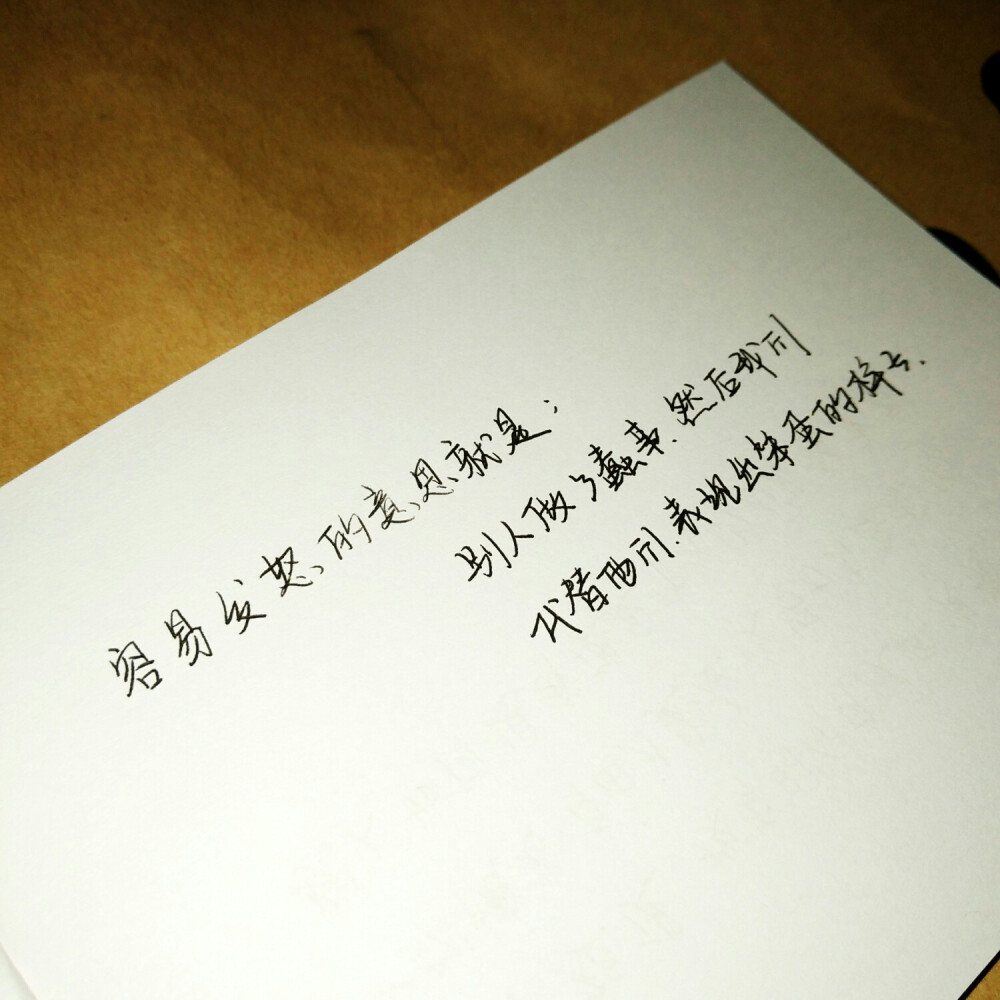 容易发怒的意思就是：
别人做了蠢事.然后我们
代替他们.表现出笨蛋的样子.